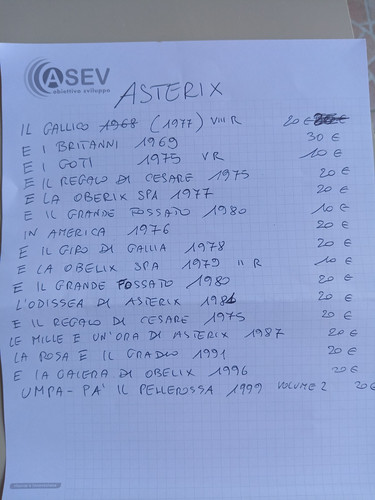 ASEV
obiettivo sviluppo
ASTERIX
IL GALLICO 1968 (1977) VIII R 20 €
E I BRITANNI 1969 30 €
E I GOTI 1975 V R 10 €
E IL REGALO DI CESARE 1975 20 €
E LA OBERIX SPA 1977 20 €
E IL GRANDE FOSSATO 1980 20 €
IN AMERICA 1976 10 €
E IL GIRO DI GALLIA 1978 20 €
E LA OBELIX SPA 1979 II R 10 €
E IL GRANDE FOSSATO 1980 20 €
L'ODISSEA DI ASTERIX 1981 20 €
E IL REGALO DI CESARE 1975 20 €
LE MILLE E UN'ORA DI ASTERIX 1987 20 €
LA ROSA E IL GRADIO 1991 20 €
E LA GALERA DI OBELIX 1996 20 €
UMPA-PA' IL PELLEROSSA 1999 VOLUME 2 20 €